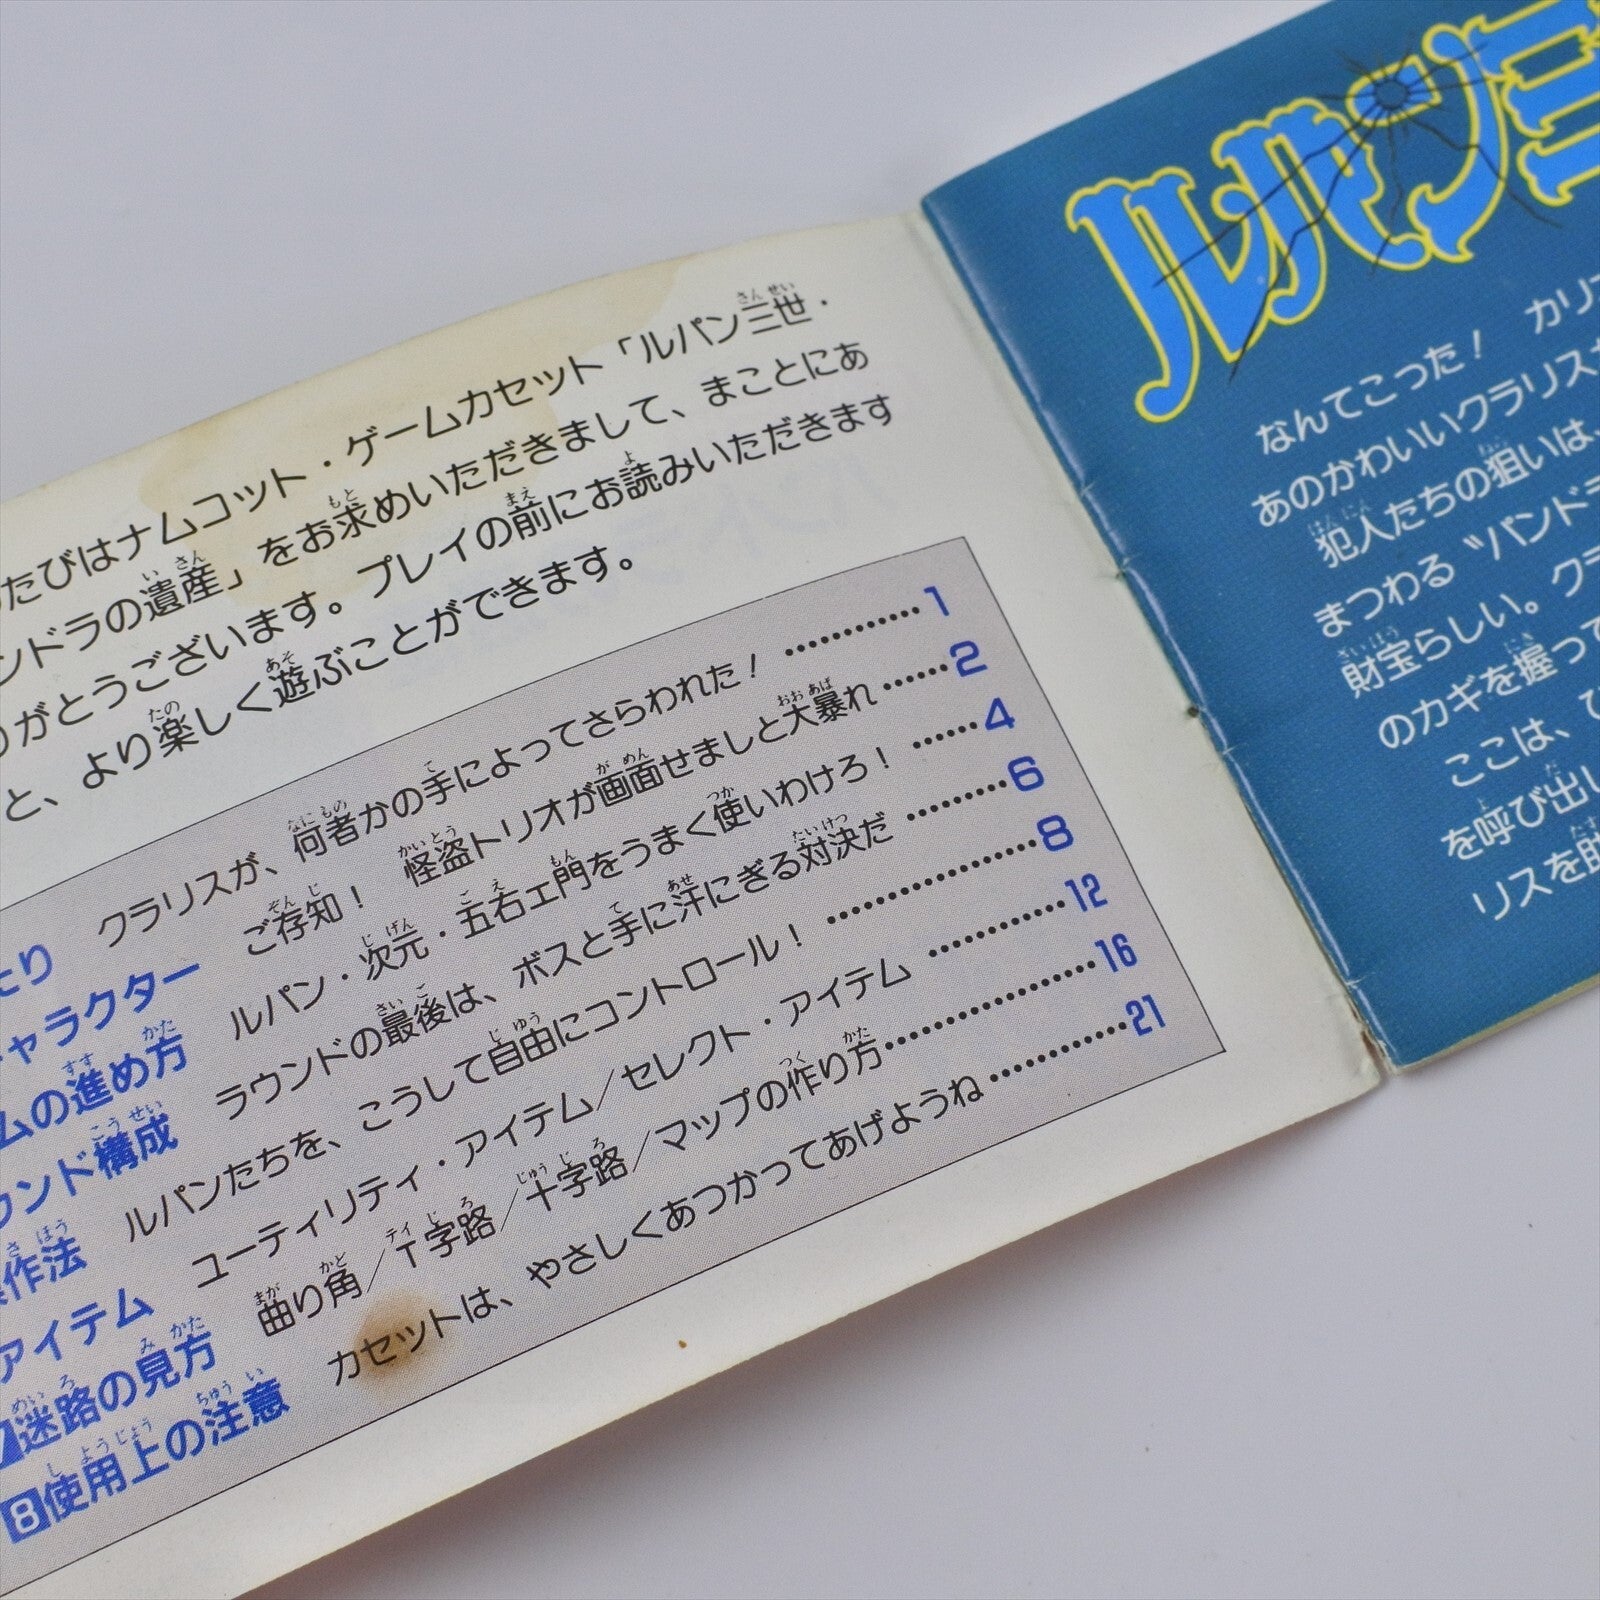 たびはナムコット・ゲームカセット「ルパン三世・
ンドラの遺産」をお求めいただきまして、まことにあ
がとうございます。プレイの前にお読みいただきます
と、より楽しく遊ぶことができます。
たり クラリスが、何者かの手によってさらわれた! 1
ャラクター ご存知! 怪盗トリオが画面せましと大暴れ 2
ムの進め方 ルパン・次元・五右ェ門をうまく使いわけろ! 4
ウンド構成 ラウンドの最後は、ボスと手に汗にぎる対決だ 6
作法 ルパンたちを、こうして自由にコントロール! 8
アイテム ユーティリティ・アイテム/セレクト・アイテム 12
7迷路の見方 曲り角/T字路/十字路/マップの作り方 16
8使用上の注意 カセットは、やさしくあつかってあげようね 21
ルパン三
なんてこった! カリオ
あのかわいいクラリスが
犯人たちの狙いは、
まつわる〝パンドラ
財宝らしい。クラ
のカギを握って
ここは、ひ
を呼び出し
リスを助